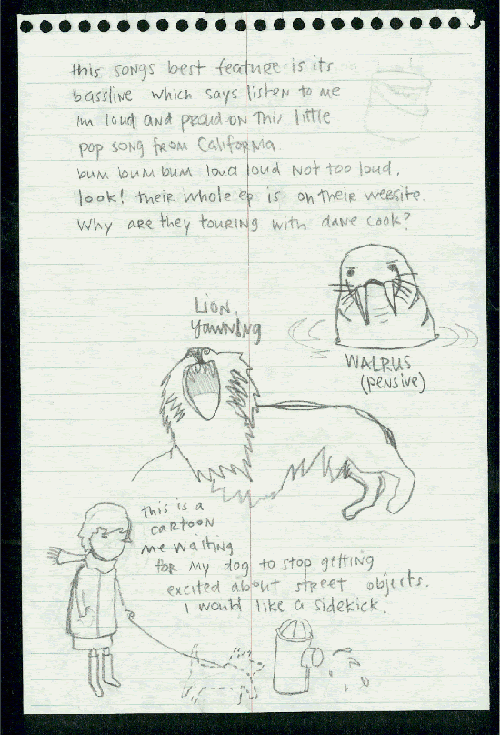 this songs best feature is its
bassline which says listen to me
im loud and proud on this little
pop song from California.
bum bum bum loud loud not too loud.
look! their whole ep is on their website.
Why are they touring with dane cook?
LION,
Yawning
WALRUS
(pensive)
This is a
cartoon
me waiting
for my dog to stop getting
excited about street objects.
I would like a sidekick.